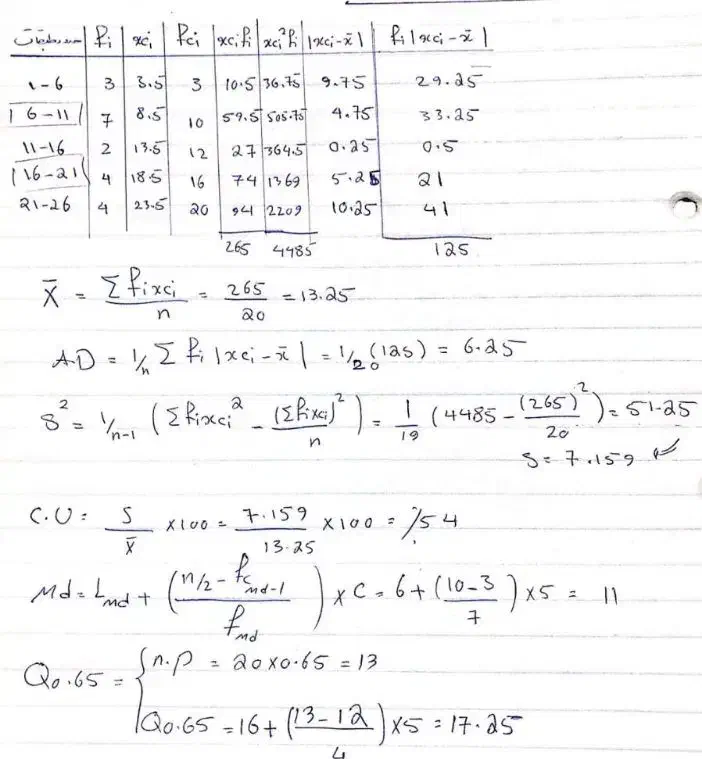 حدود طبقات fi xci fci xcifi xci²fi |xci-x̄| fi|xci-x̄|
1-6 3 3.5 3 10.5 36.75 9.75 29.25
6-11 7 8.5 10 59.5 505.75 4.75 33.25
11-16 2 13.5 12 27 364.5 0.25 0.5
16-21 4 18.5 16 74 1369 5.25 21
21-26 4 23.5 20 94 2209 10.25 41
265 4485 125
X̄ = Σfixci/n = 265/20 = 13.25
A.D = 1/n Σ fi |xci-x̄| = 1/20 (125) = 6.25
S² = 1/n-1 (Σfixci² - (Σfixci)²/n) = 1/19 (4485 - (265)²/20) = 51.25
S = 7.159
C.V = S/X̄ ×100 = 7.159/13.25 ×100 = %54
Md = Lmd + (n/2 - fc md-1 / fmd) × C = 6 + (10-3/7) ×5 = 11
Q0.65 = { n.p = 20×0.65 = 13
Q0.65 = 16 + (13-12/4) ×5 = 17.25